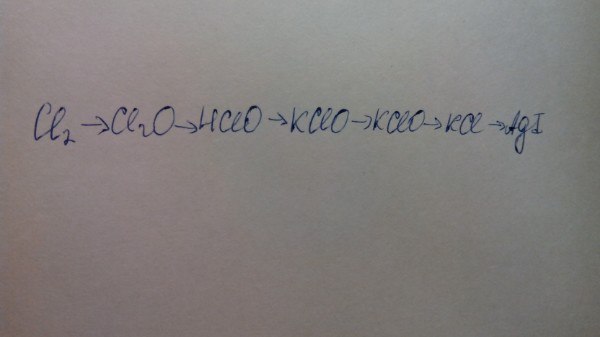 Cl₂ → Cl₂O → HClO → KClO → KClO → KCl → AgI